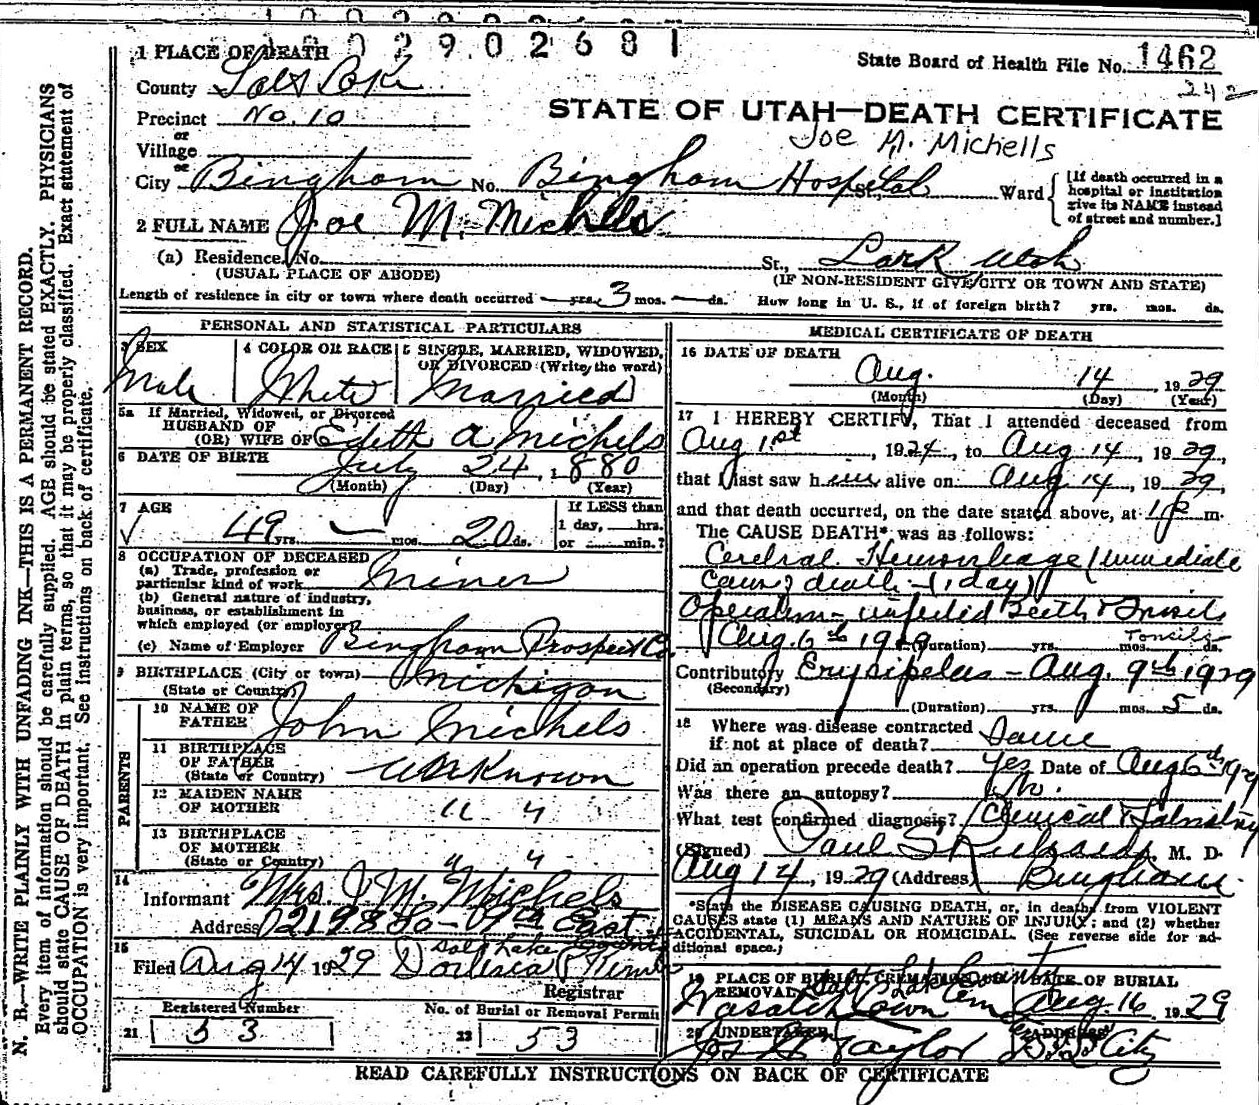 1002902681
1 PLACE OF DEATH
State Board of Health File No. 1462
242
County Salt Lake
Precinct No. 10
STATE OF UTAH—DEATH CERTIFICATE
or
Village
Joe M. Michells
or
City Bingham No. Bingham Hospital St., Ward
[If death occurred in a
hospital or institution
give its NAME instead
of street and number.]
2 FULL NAME Joe M. Michels
(a) Residence. No. St., Lark Utah
(USUAL PLACE OF ABODE) (IF NON-RESIDENT GIVE CITY OR TOWN AND STATE)
Length of residence in city or town where death occurred — yrs. 3 mos. — ds. How long in U. S., if of foreign birth? yrs. mos. ds.
PERSONAL AND STATISTICAL PARTICULARS
3 SEX
Male
4 COLOR OR RACE
White
5 SINGLE, MARRIED, WIDOWED,
OR DIVORCED (Write the word)
Married
5a If Married, Widowed, or Divorced
HUSBAND OF
(OR) WIFE OF Edith A Michels
6 DATE OF BIRTH
July 24, 1880
(Month) (Day) (Year)
7 AGE
49 yrs. — mos. 20 ds.
If LESS than
1 day, hrs.
or min.?
8 OCCUPATION OF DECEASED
(a) Trade, profession or
particular kind of work Miner
(b) General nature of industry,
business, or establishment in
which employed (or employer)
(c) Name of Employer Bingham Prospect Co.
9 BIRTHPLACE (City or town)
(State or Country) Michigan
PARENTS
10 NAME OF
FATHER John Michels
11 BIRTHPLACE
OF FATHER
(State or Country) unknown
12 MAIDEN NAME
OF MOTHER " "
13 BIRTHPLACE
OF MOTHER
(State or Country) " "
14
Informant Mrs. J M. Michels
Address 2198 So. 9th East
Salt Lake County
15
Filed Aug 14 1929
Registrar
Registered Number
21 53
No. of Burial or Removal Permit
22 53
MEDICAL CERTIFICATE OF DEATH
16 DATE OF DEATH
Aug. 14, 1929
(Month) (Day) (Year)
17 I HEREBY CERTIFY, That I attended deceased from
Aug 1st, 1924, to Aug 14, 1929,
that I last saw him alive on Aug 14, 1929,
and that death occurred, on the date stated above, at 1 p m.
The CAUSE DEATH* was as follows:
Cerebral Hemorrhage (immediate
cause of death - (1 day)
Operation - infected Teeth & Tonsils
Aug. 6th 1929 (Duration) yrs. mos. ds.
Tonsils
Contributory Erysipelas - Aug. 9th 1929
(Secondary)
(Duration) yrs. mos. 5 ds.
18 Where was disease contracted
if not at place of death? Same
Did an operation precede death? Yes Date of Aug 6th 1929
Was there an autopsy? No.
What test confirmed diagnosis? Clinical
(Signed) Paul S. M. D.
Aug 14, 1929 (Address) Bingham
*State the DISEASE CAUSING DEATH, or, in deaths from VIOLENT
CAUSES state (1) MEANS AND NATURE OF INJURY; and (2) whether
ACCIDENTAL, SUICIDAL OR HOMICIDAL. (See reverse side for ad-
ditional space.)
19 PLACE OF BURIAL, CREMATION OR
REMOVAL Salt Lake County
Wasatch Lawn Cem
DATE OF BURIAL
Aug. 16 1929
20 UNDERTAKER
Jos. Wm Taylor
ADDRESS
S. L. City
READ CAREFULLY INSTRUCTIONS ON BACK OF CERTIFICATE
N. B.—WRITE PLAINLY WITH UNFADING INK—THIS IS A PERMANENT RECORD.
Every item of information should be carefully supplied. AGE should be stated EXACTLY. PHYSICIANS
should state CAUSE OF DEATH in plain terms, so that it may be properly classified. Exact statement of
OCCUPATION is very important. See instructions on back of certificate.